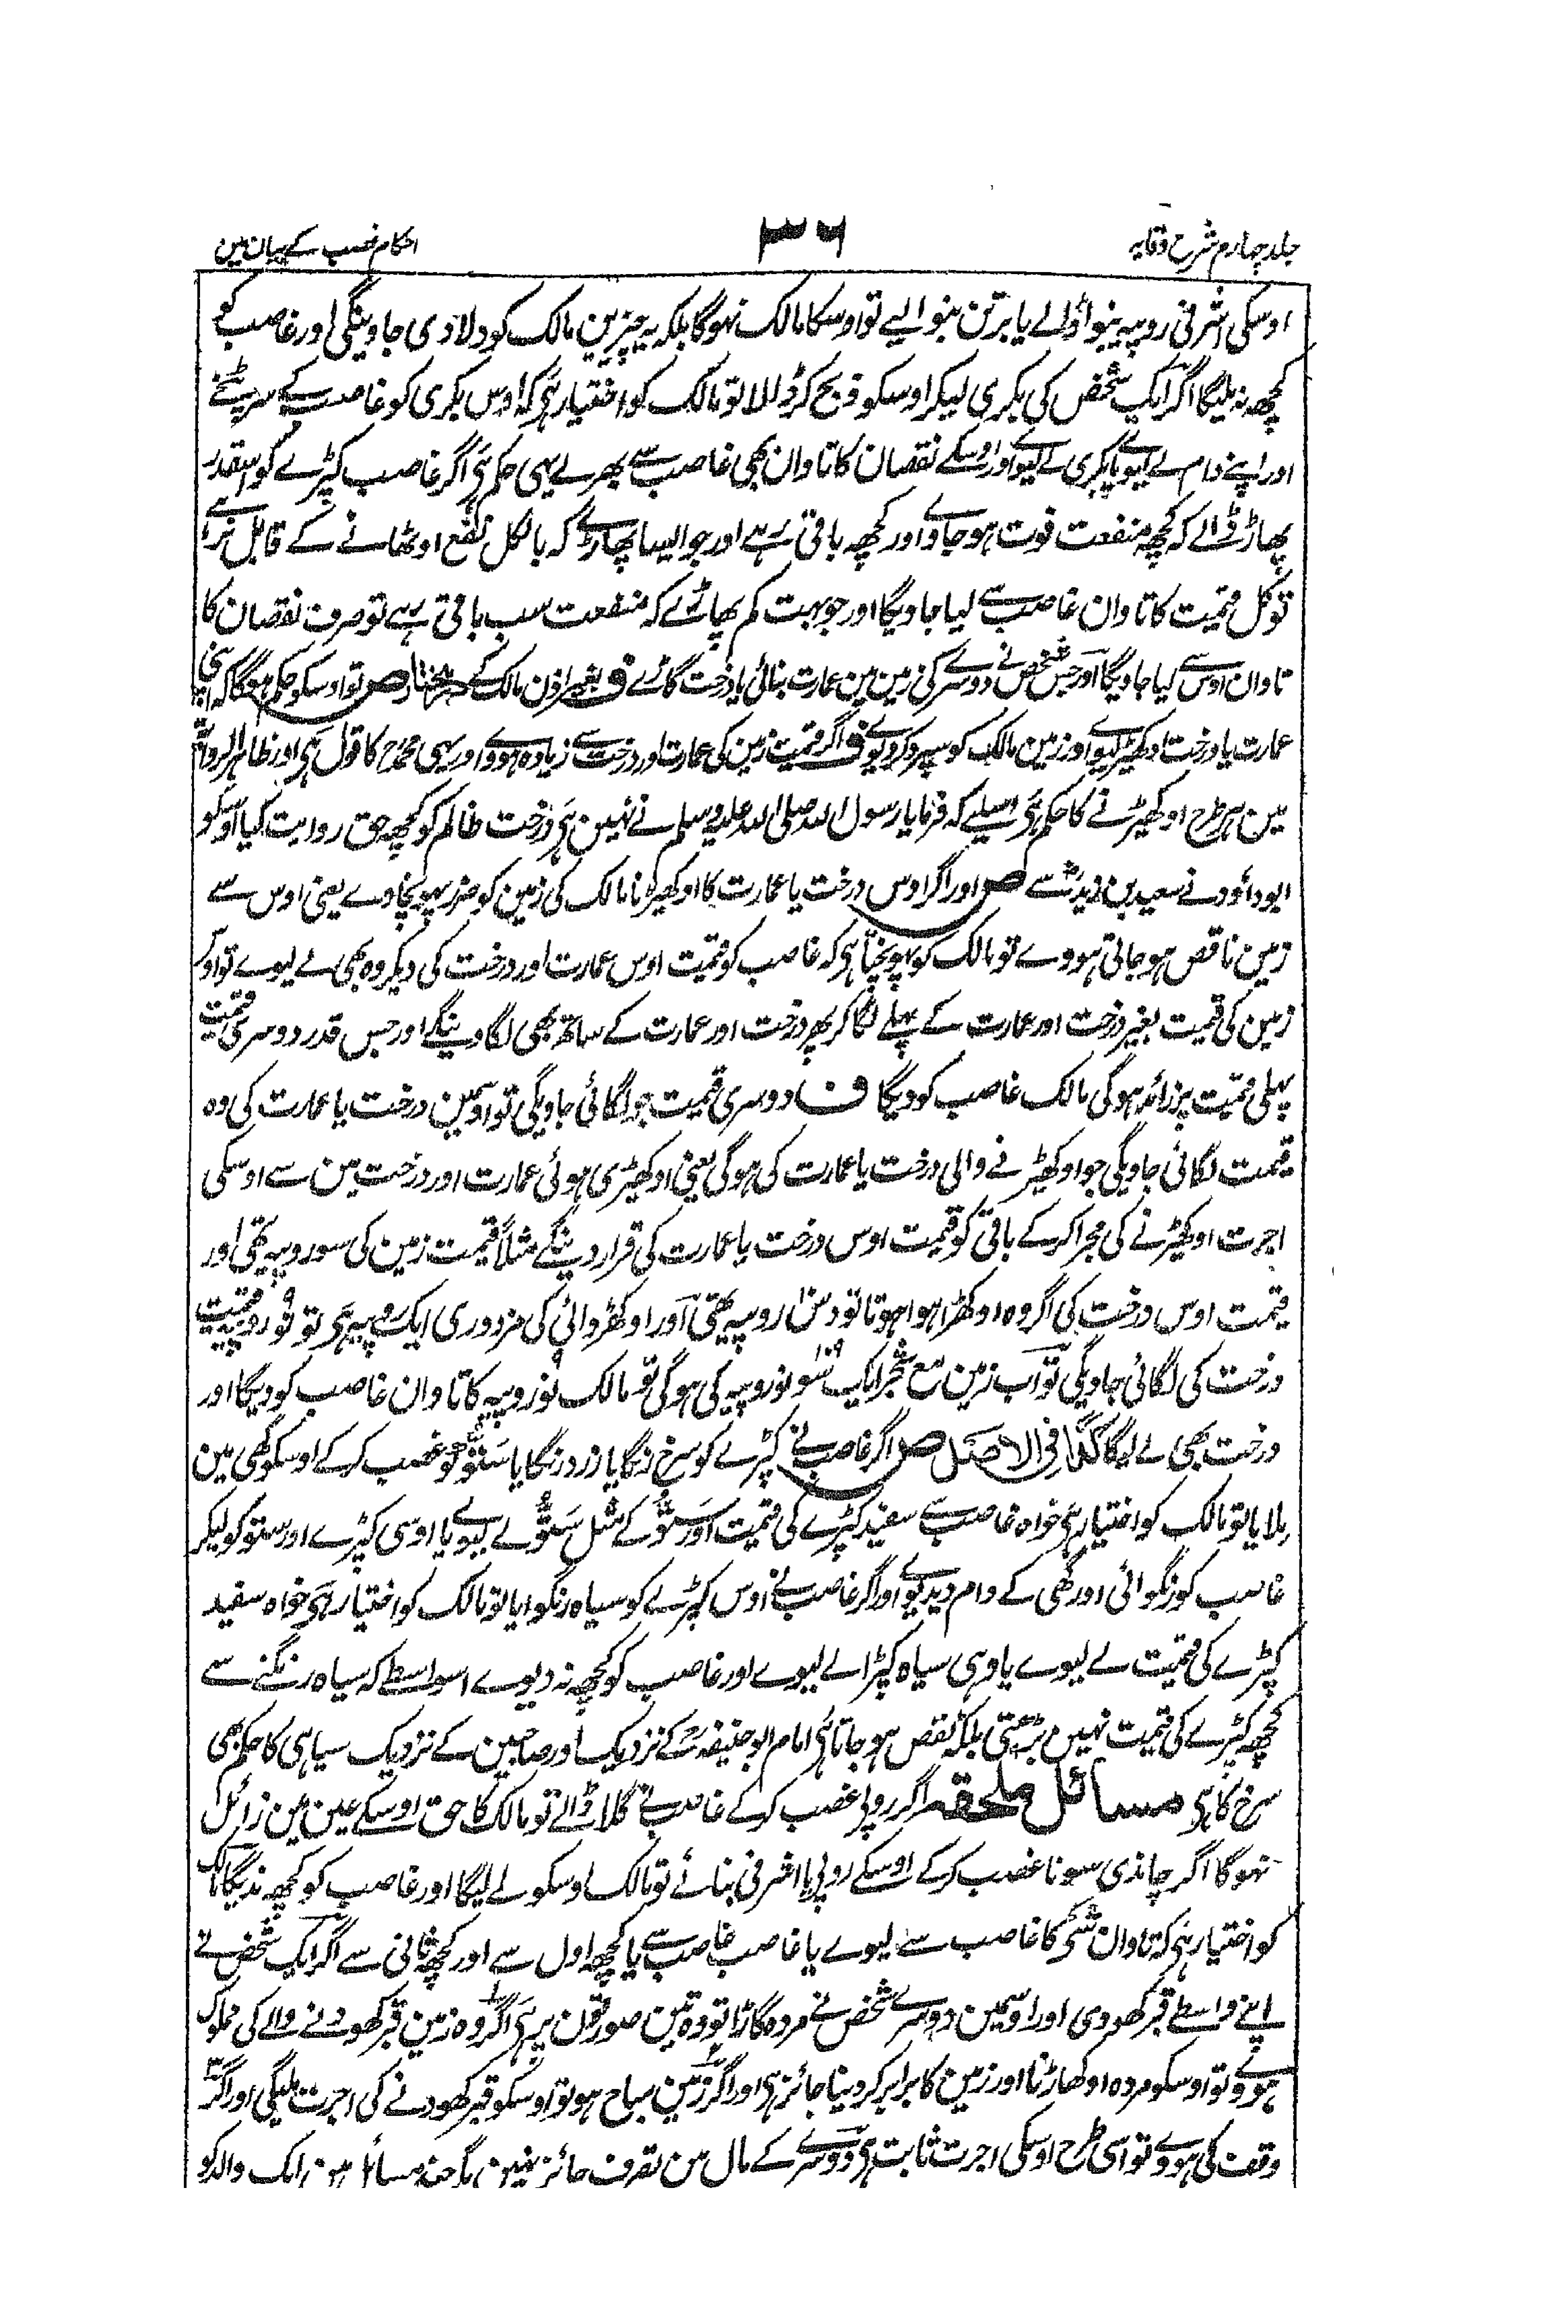 جلد چہارم شرح وقایہ
۳۶
احکام غصب کے بیان مین
اوسکی اشرفی روپیہ بنوا ڈالے یا برتن بنوالیے تو اوسکا مالک نہوگا بلکہ یہ چیزین مالک کو دلادی جاوینگی اور غاصب کو
کچھ نہ ملیگا اگر ایک شخص کی بکری لیکر اوسکو ذبح کر ڈالا تو مالک کو اختیار ہی کہ اوس بکری کو غاصب کے سر پٹخے
اور اپنے دام لے لیوے یا بکری لے لیوے اور اوسکے نقصان کا تاوان بھی غاصب سے بھر لے یہی حکم ہی اگر غاصب کپڑے کو اسقدر
پھاڑ ڈالے کہ کچھ منفعت فوت ہو جاوے اور کچھ باقی رہے اور جو ایسا پھاڑے کہ بالکل نفع اوٹھانے کے قابل نرہے
تو کل قیمت کا تاوان غاصب سے لیا جاویگا اور جو بہت کم پھاڑے کہ منفعت سب باقی رہے تو صرف نقصان کا
تاوان اوس سے لیا جاویگا اور جس شخص نے دوسرے کی زمین مین عمارت بنائی یا درخت گاڑے ف بغیر اذن مالک کے ص تو اوسکو حکم ہوگا کہ اپنی
عمارت یا درخت اوکھیڑ لیوے اور زمین مالک کو سپرد کر دیوے ف اگر قیمت زمین کی عمارت اور درخت سے زیادہ ہووے اور یہی محمدؒ کا قول ہی اور ظاہر الروایۃ
مین ہر طرح اوکھیڑنے کا حکم ہی اسلیے کہ فرمایا رسول اللہ صلی اللہ علیہ وسلم نے نہین ہی درخت ظالم کو کچھ حق روایت کیا اوسکو
ابوداؤد نے سعید بن زیدؓ سے ص اور اگر اوس درخت یا عمارت کا اوکھیڑنا مالک کی زمین کو ضرر پہونچاوے یعنی اوس سے
زمین ناقص ہو جاتی ہووے تو مالک کو پہونچتا ہی کہ غاصب کو قیمت اوس عمارت اور درخت کی دیکر وہ بھی لے لیوے تو اوس
زمین کی قیمت بغیر درخت اور عمارت کے پہلے لگا کر پھر درخت اور عمارت کے ساتھ بھی لگاوینگے اور جس قدر دوسری قیمت
پہلی قیمت پر زائد ہوگی مالک غاصب کو دیگا ف دوسری قیمت جو لگائی جاویگی تو اوسمین درخت یا عمارت کی وہ
قیمت لگائی جاویگی جو اوکھڑنے والی درخت یا عمارت کی ہوگی یعنی اوکھیڑی ہوئی عمارت اور درخت مین سے اوسکی
اجرت اوکھیڑنے کی مجرا کر کے باقی کو قیمت اوس درخت یا عمارت کی قرار دینگے مثلاً قیمت زمین کی سو روپیہ تھی اور
قیمت اوس درخت کی اگر وہ اوکھڑا ہوا ہوتا تو دس روپیہ تھی اور اوکھڑوائی کی مزدوری ایک روپیہ ہی تو نو روپیہ قیمت
درخت کی لگائی جاویگی تو اب زمین مع شجر ایک سو نو روپیہ کی ہوگی تو مالک نو روپیہ کا تاوان غاصب کو دیگا اور
درخت بھی لے لیگا کذا فی الاصل ص اگر غاصب نے کپڑے کو سرخ رنگا یا زرد رنگا یا ستو غصب کر کے اوسکو گھی مین
ملایا تو مالک کو اختیار ہی خواہ غاصب سے سفید کپڑے کی قیمت اور ستو کے مثل ستو لے لیوے یا اوسی کپڑے اور ستو کو لیکر
غاصب کو رنگوائی اور گھی کے دام دیدیوے اور اگر غاصب نے اوس کپڑے کو سیاہ رنگوایا تو مالک کو اختیار ہی خواہ سفید
کپڑے کی قیمت لے لیوے یا وہی سیاہ کپڑا لے لیوے اور غاصب کو کچھ نہ دیوے اسواسطے کہ سیاہ رنگنے سے
کچھ کپڑے کی قیمت نہین بڑھتی بلکہ نقص ہو جاتا ہی امام ابو حنیفہؒ کے نزدیک اور صاحبین کے نزدیک سیاہی کا حکم بھی
سرخ کا ہی مسائل ملحقہ اگر روپے غصب کر کے غاصب نے گلا ڈالے تو مالک کا حق اوسکے عین مین زائل
نہوگا اگر چاندی سونا غصب کر کے اوسکے روپے یا اشرفی بنائے تو مالک اوسکو لے لیگا اور غاصب کو کچھ ندیگا مالک
کو اختیار ہی کہ تاوان شئ کا غاصب سے لیوے یا غاصب غاصب سے یا کچھ اول سے اور کچھ ثانی سے اگر ایک شخص نے
اپنے واسطے قبر کھودی اور اوسمین دوسرے شخص نے مردہ گاڑا تو وہ تین صورتون پر ہی اگر وہ زمین قبر کھودنے والے کی مملوک
ہووے تو اوسکو مردہ اوکھاڑنا اور زمین کا برابر کر دینا جائز ہی اور اگر زمین مباح ہو تو اوسکو قبر کھودنے کی اجرت ملیگی اور اگر
وقف کی ہووے تو اسی طرح اوسکی اجرت ثابت ہی دوسرے کے مال مین تصرف جائز نہین مگر چند مسائل مین ایک والد کو